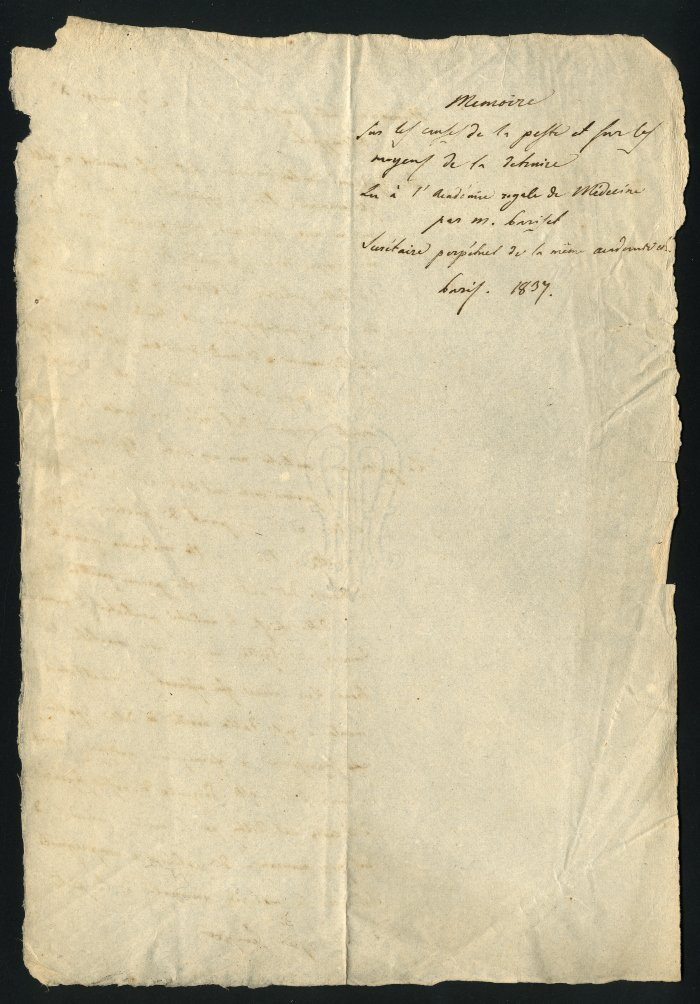 Memoire
sur les causes de la peste et sur les
moyens de la detruire
Lu à l'académie royale de Médecine
par m. Pariset
Secrétaire perpétuel de la même
Paris. 1837.